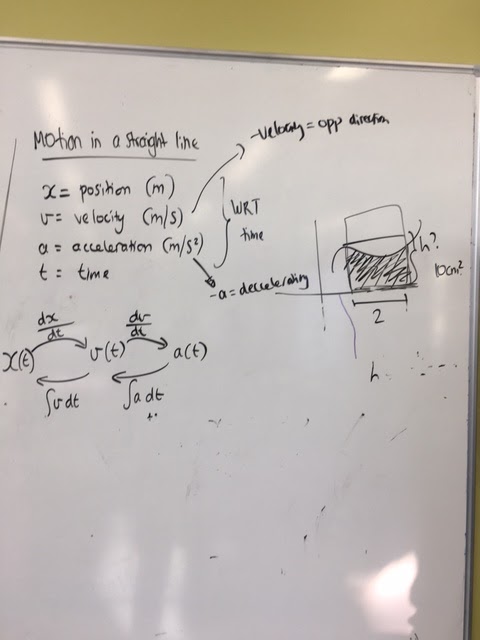 Motion in a straight line
-velocity = opp direction
x = position (m)
v = velocity (m/s)
a = acceleration (m/s²)
t = time
WRT
time
-a = deccelerating
h?
10cm²
2
h
dx/dt
dv/dt
x(t)
v(t)
a(t)
∫v dt
∫a dt